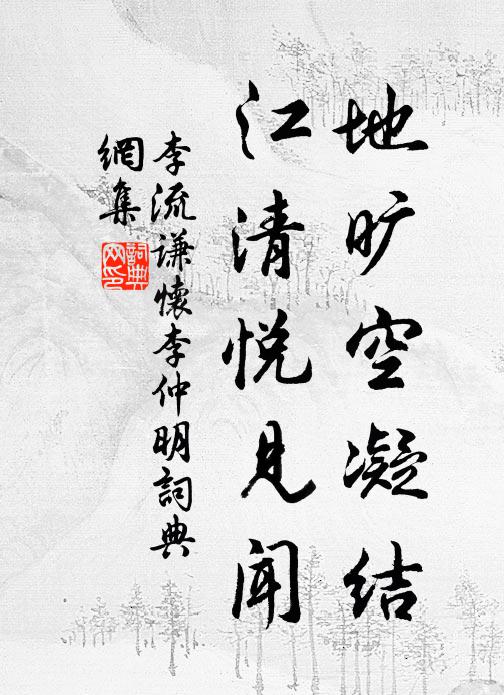 地旷空凝结
江清悦見闻
李流谦懷李仲明詞典
網集
詞典
网印